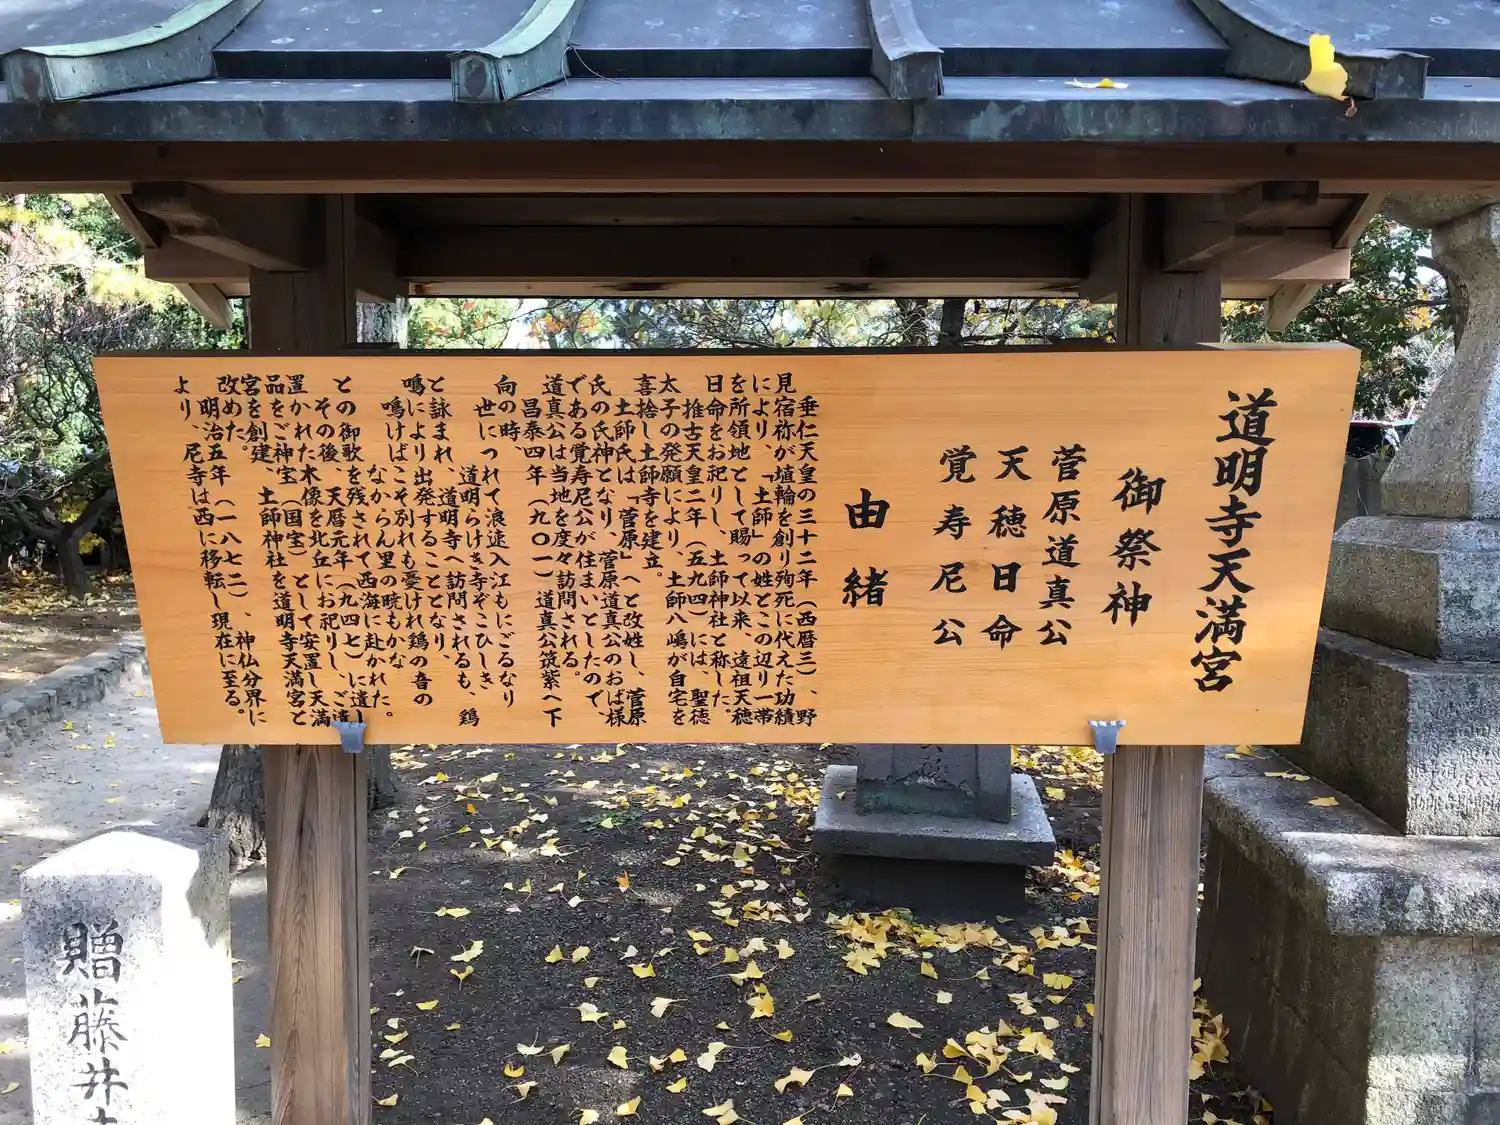 道明寺天満宮
御祭神
菅原道真公
天穂日命
覚寿尼公
由緒
垂仁天皇の三十二年（西暦三）、野
見宿祢が埴輪を創り殉死に代えた功績
により、「土師」の姓とこの辺り一帯
を所領地として賜って以来、遠祖天穂
日命をお祀りし、土師神社と称した。
推古天皇二年（五九四）には、聖徳
太子の発願により、土師八嶋が自宅を
喜捨し土師寺を建立。
土師氏は「菅原」へと改姓し、菅原
氏の氏神となり、菅原道真公のおば様
である覚寿尼公が住まいとしたので、
道真公は当地を度々訪問される。
昌泰四年（九〇一）道真公筑紫へ下
向の時、
世につれて浪速入江もにごるなり
道明らけき寺ぞこひしき
と詠まれ、道明寺へ訪問されるも、鶏
鳴により出発することとなり、
鳴けばこそ別れも憂けれ鶏の音の
なからん里の暁もかな
との御歌を残されて西海に赴かれた。
その後、天暦元年（九四七）に遺し
置かれた木像を北丘にお祀りし、ご遺
品をご神宝（国宝）として安置し天満
宮を創建、土師神社を道明寺天満宮と
改めた。
明治五年（一八七二）、神仏分界に
より、尼寺は西に移転し現在に至る。
贈藤井